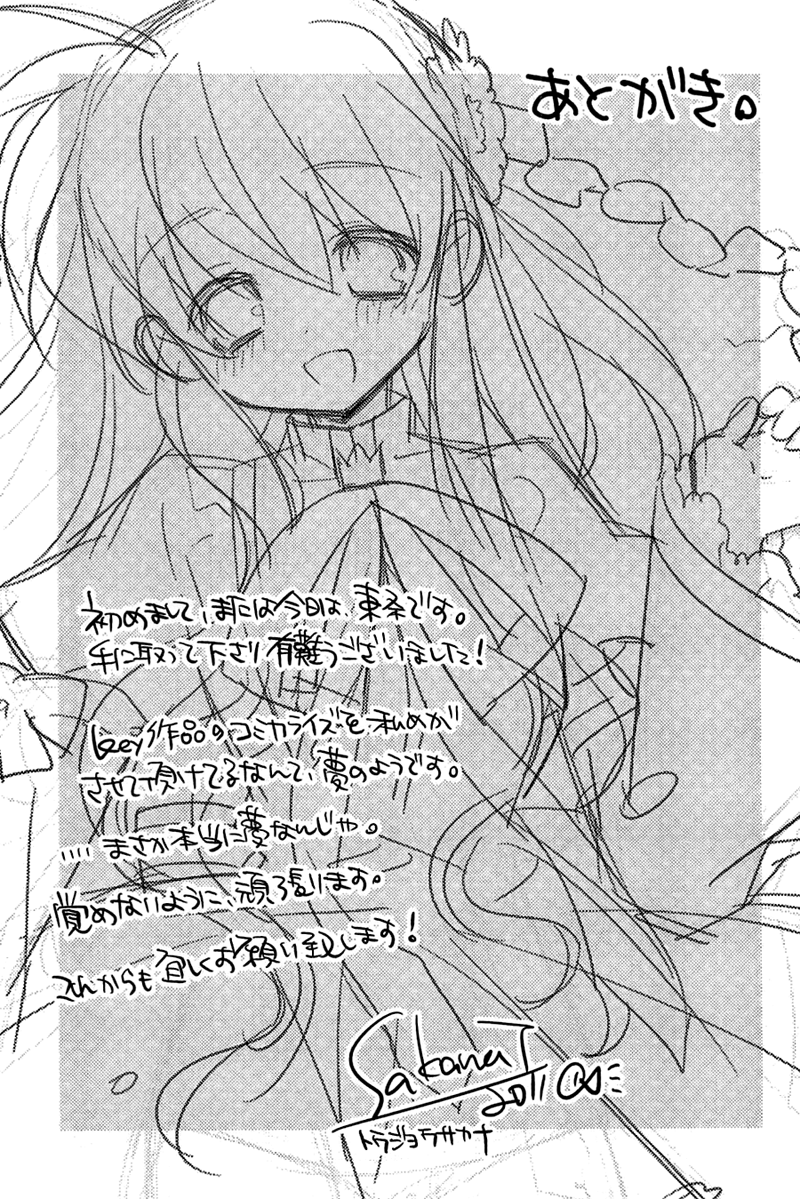 あとがき。
初めまして、または今日は、東条です。
手に取って下さり有難うございました!
Key作品のコミカライズを私めが
させて頂けてるなんて、夢のようです。
.... まさか本当に夢なんじゃ。
覚めないように、頑張ります。
これからも宜しくお願い致します!
Sakana T
2011
トウジョウサカナ